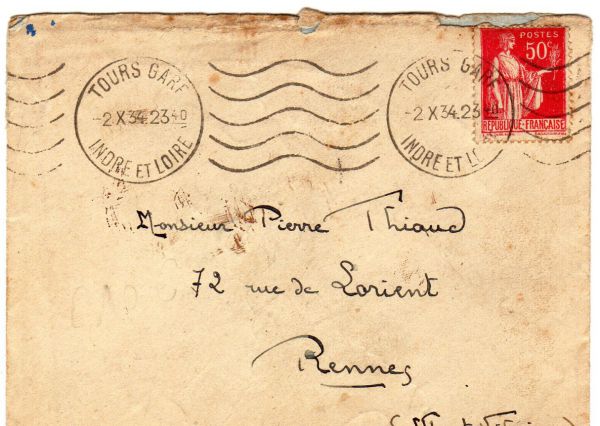 TOURS GARE
-2 X 34.23 40
INDRE ET LOIRE
TOURS GARE
-2 X 34.23 40
INDRE ET LO
POSTES
50c
REPUBLIQUE-FRANÇAISE
Monsieur Pierre Thiaud
72 rue de Lorient
Rennes